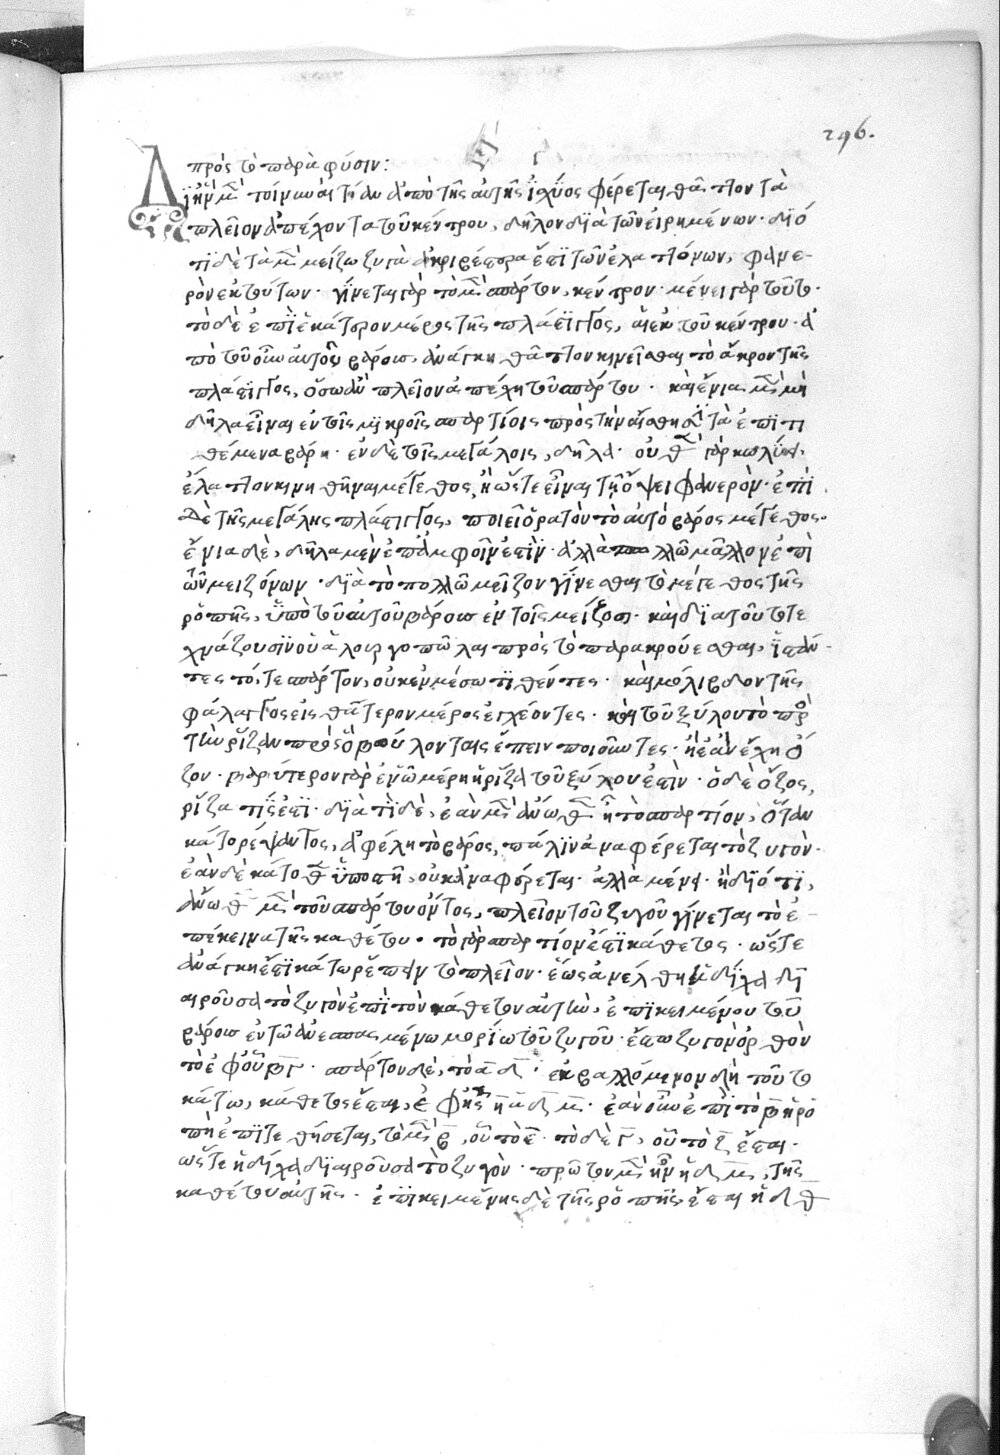 296.
πρὸς τὸ παρὰ φύσιν:
Δι ἣν μὲν τοίνυν αἰτίαν ἀπὸ τῆς αὐτῆς ἰσχύος φέρεται θᾶττον τὰ
πλεῖον ἀπέχοντα τοῦ κέντρου, δῆλον διὰ τῶν εἰρημένων· διό
τι δὲ τὰ μὲν μείζω ζυγὰ ἀκριβέστερα ἐστὶ τῶν ἐλαττόνων, φανε-
ρὸν ἐκ τούτων· γίνεται γὰρ τὸ μὲν σπάρτον, κέντρον· μένει γὰρ τοῦτο·
τὸ δὲ ἐπὶ ἑκάτερον μέρος τῆς πλάστιγγος, αἱ ἐκ τοῦ κέντρου· ἀ
πὸ τοῦ οὖν αὐτοῦ βάρους, ἀνάγκη θᾶττον κινεῖσθαι τὸ ἄκρον τῆς
πλάστιγγος, ὅσω ἂν πλεῖον ἀπέχη τοῦ σπάρτου· καὶ ἔνια μὲν μὴ
δῆλα εἶναι ἐν τοῖς μικροῖς σπαρτίοις πρὸς τὴν αἴσθησιν τὰ ἐπιτι
θέμενα βάρη· ἐν δὲ τοῖς μεγάλοις, δῆλα· οὐθὲν γὰρ κωλύει,
ἔλαττον κινηθῆναι μέγεθος, ἢ ὥστε εἶναι τῇ ὄψει φανερόν· ἐπὶ
δὲ τῆς μεγάλης πλάστιγγος, ποιεῖ ὁρατὸν τὸ αὐτὸ βάρος μέγεθος·
ἔνια δὲ, δῆλα μὲν ἐπ' ἀμφοῖν ἐστὶν· ἀλλὰ πολλῶ μᾶλλον ἐπὶ
τῶν μειζόνων· διὰ τὸ πολλῶ μεῖζον γίνεσθαι τὸ μέγεθος τῆς
ῥοπῆς, ὑπὸ τοῦ αὐτοῦ βάρους ἐν τοῖς μείζοσι· καὶ διὰ τοῦτο τε
χνάζουσιν οἱ ἁλουργοπῶλαι πρὸς τὸ παρακρούεσθαι, ἱστάν-
τες τό, τε σπάρτον, οὐκ ἐν μέσω τιθέντες· καὶ μόλιβδον τῆς
φάλαγγος εἰς θάτερον μέρος ἐγχέοντες· καὶ τοῦ ξύλου τὸ πρὸς
τὴν ῥίζαν πρὸς ὃ βούλονται ῥέπειν ποιοῦντες· ἢ ἐὰν ἔχη ὄ
ζον· βαρύτερον γὰρ ἐν ᾧ μέρει ἡ ῥίζα τοῦ ξύλου ἐστὶν· ὁ δὲ ὄζος,
ῥίζα τίς ἐστι· διὰ τί δὲ, ἐὰν μὲν ἄνωθεν ᾖ τὸ σπαρτίον, ὅταν
κάτω ῥέψαντος, ἀφέλη τὸ βάρος, πάλιν ἀναφέρεται τὸ ζυγόν·
ἐὰν δὲ κάτωθεν ὑποστῆ, οὐκ ἀναφέρεται· ἀλλὰ μένει· ἢ διότι,
ἄνωθεν μὲν τοῦ σπάρτου ὄντος, πλεῖον τοῦ ζυγοῦ γίνεται τὸ ἐ-
πέκεινα τῆς καθέτου· τὸ γὰρ σπαρτίον ἐστὶ κάθετος· ὥστε
ἀνάγκη ἐστὶ κάτω ῥέπειν τὸ πλεῖον· ἕως ἂν ἔλθη ἡ δίχα δι
αιροῦσα τὸ ζυγὸν ἐπὶ τὸν κάθετον αὐτὴν, ἐπικειμένου τοῦ
βάρους ἐν τῶ ἀνεσπασμένω μορίω τοῦ ζυγοῦ· ἔστω ζυγὸν ὀρθὸν
τὸ ἐφ' οὗ β̅γ̅· σπάρτον δὲ, τὸ α̅δ̅· ἐκβαλλόμενον δὴ τοῦτο
κάτω, κάθετος ἔσται, ἐφ' ἧς ἡ α̅δ̅μ̅· ἐὰν οὖν ἐπὶ τὸ β̅ ἡ ῥο
πὴ ἐπιτεθήσεται, τὸ μὲν β̅, οὗ τὸ ε̅· τὸ δὲ γ̅, οὗ τὸ ζ̅ ἔσται·
ὥστε ἡ δίχα διαιροῦσα τὸ ζυγόν· πρῶτον μὲν ἦν ἡ δ̅μ̅, τῆς
καθέτου αὐτῆς· ἐπικειμένης δὲ τῆς ῥοπῆς, ἔσται ἡ δ̅θ̅